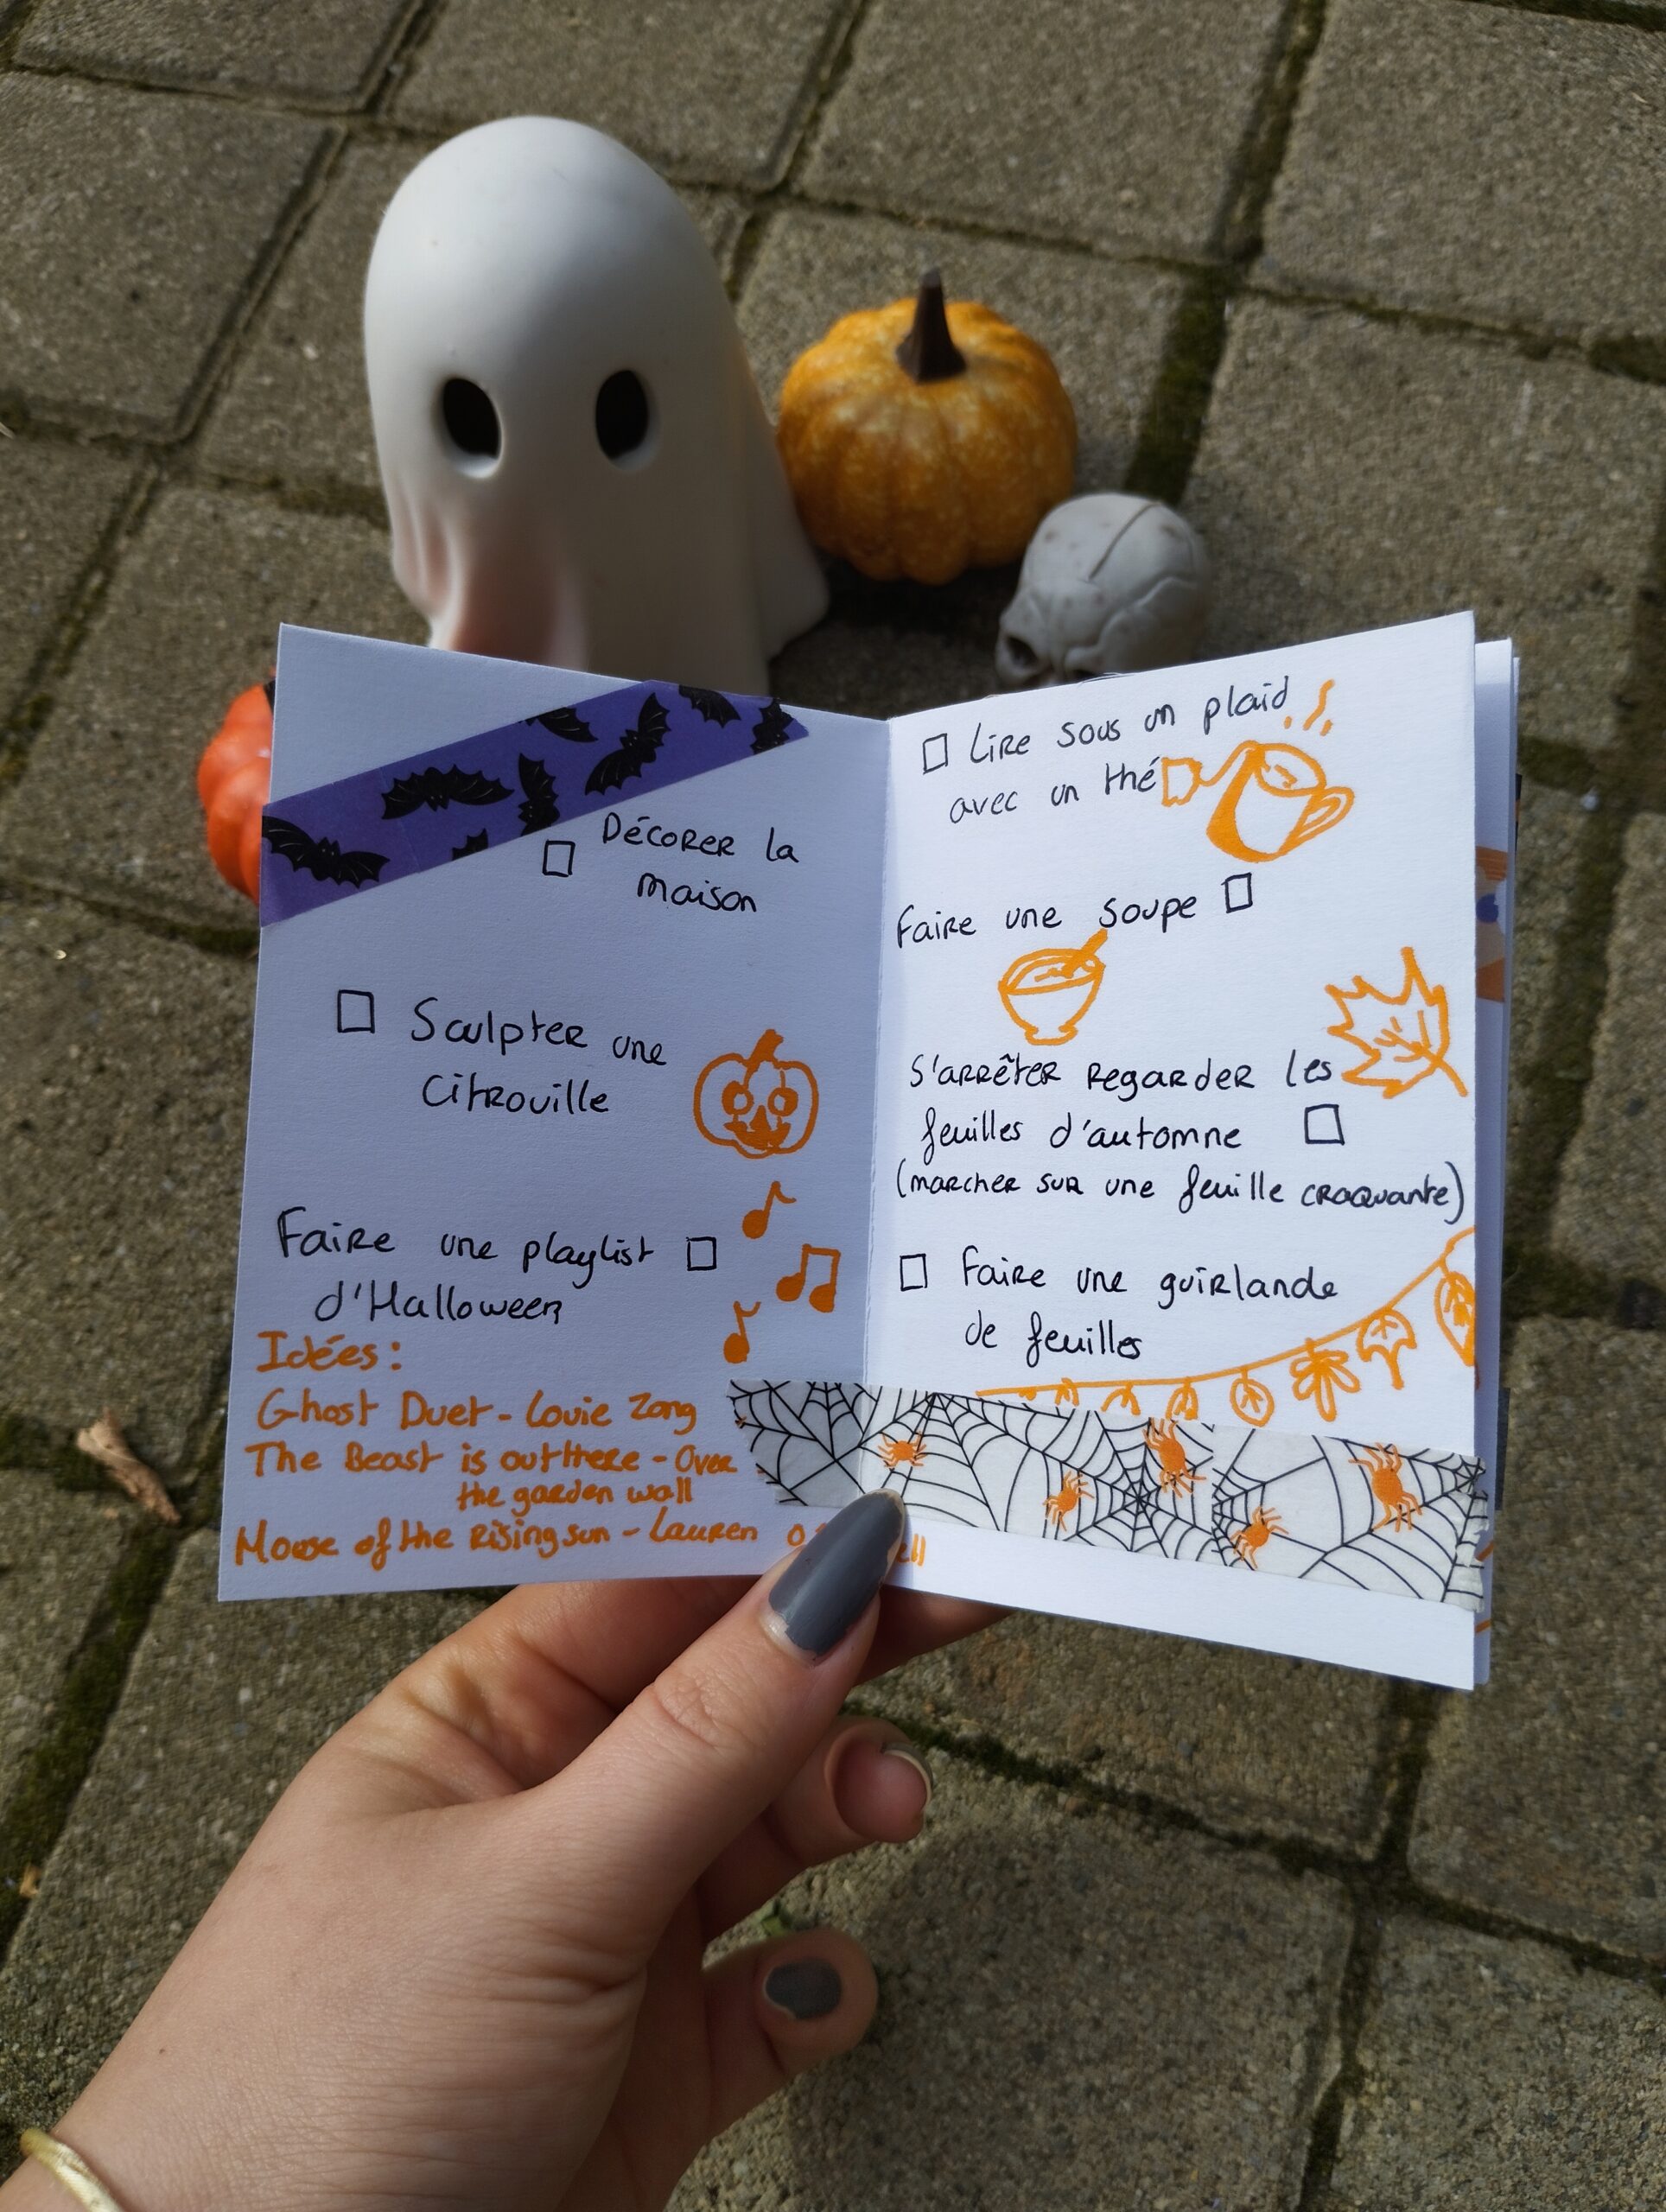 Décorer la
maison
Sculpter une
citrouille
Faire une playlist
d'Halloween
Idées :
Ghost Duet - Louie Zong
The Beast is out there - Over
the garden wall
House of the Rising sun - Lauren
Lire sous un plaid
avec un thé
Faire une soupe
S'arrêter regarder les
feuilles d'automne
(marcher sur une feuille croquante)
Faire une guirlande
de feuilles